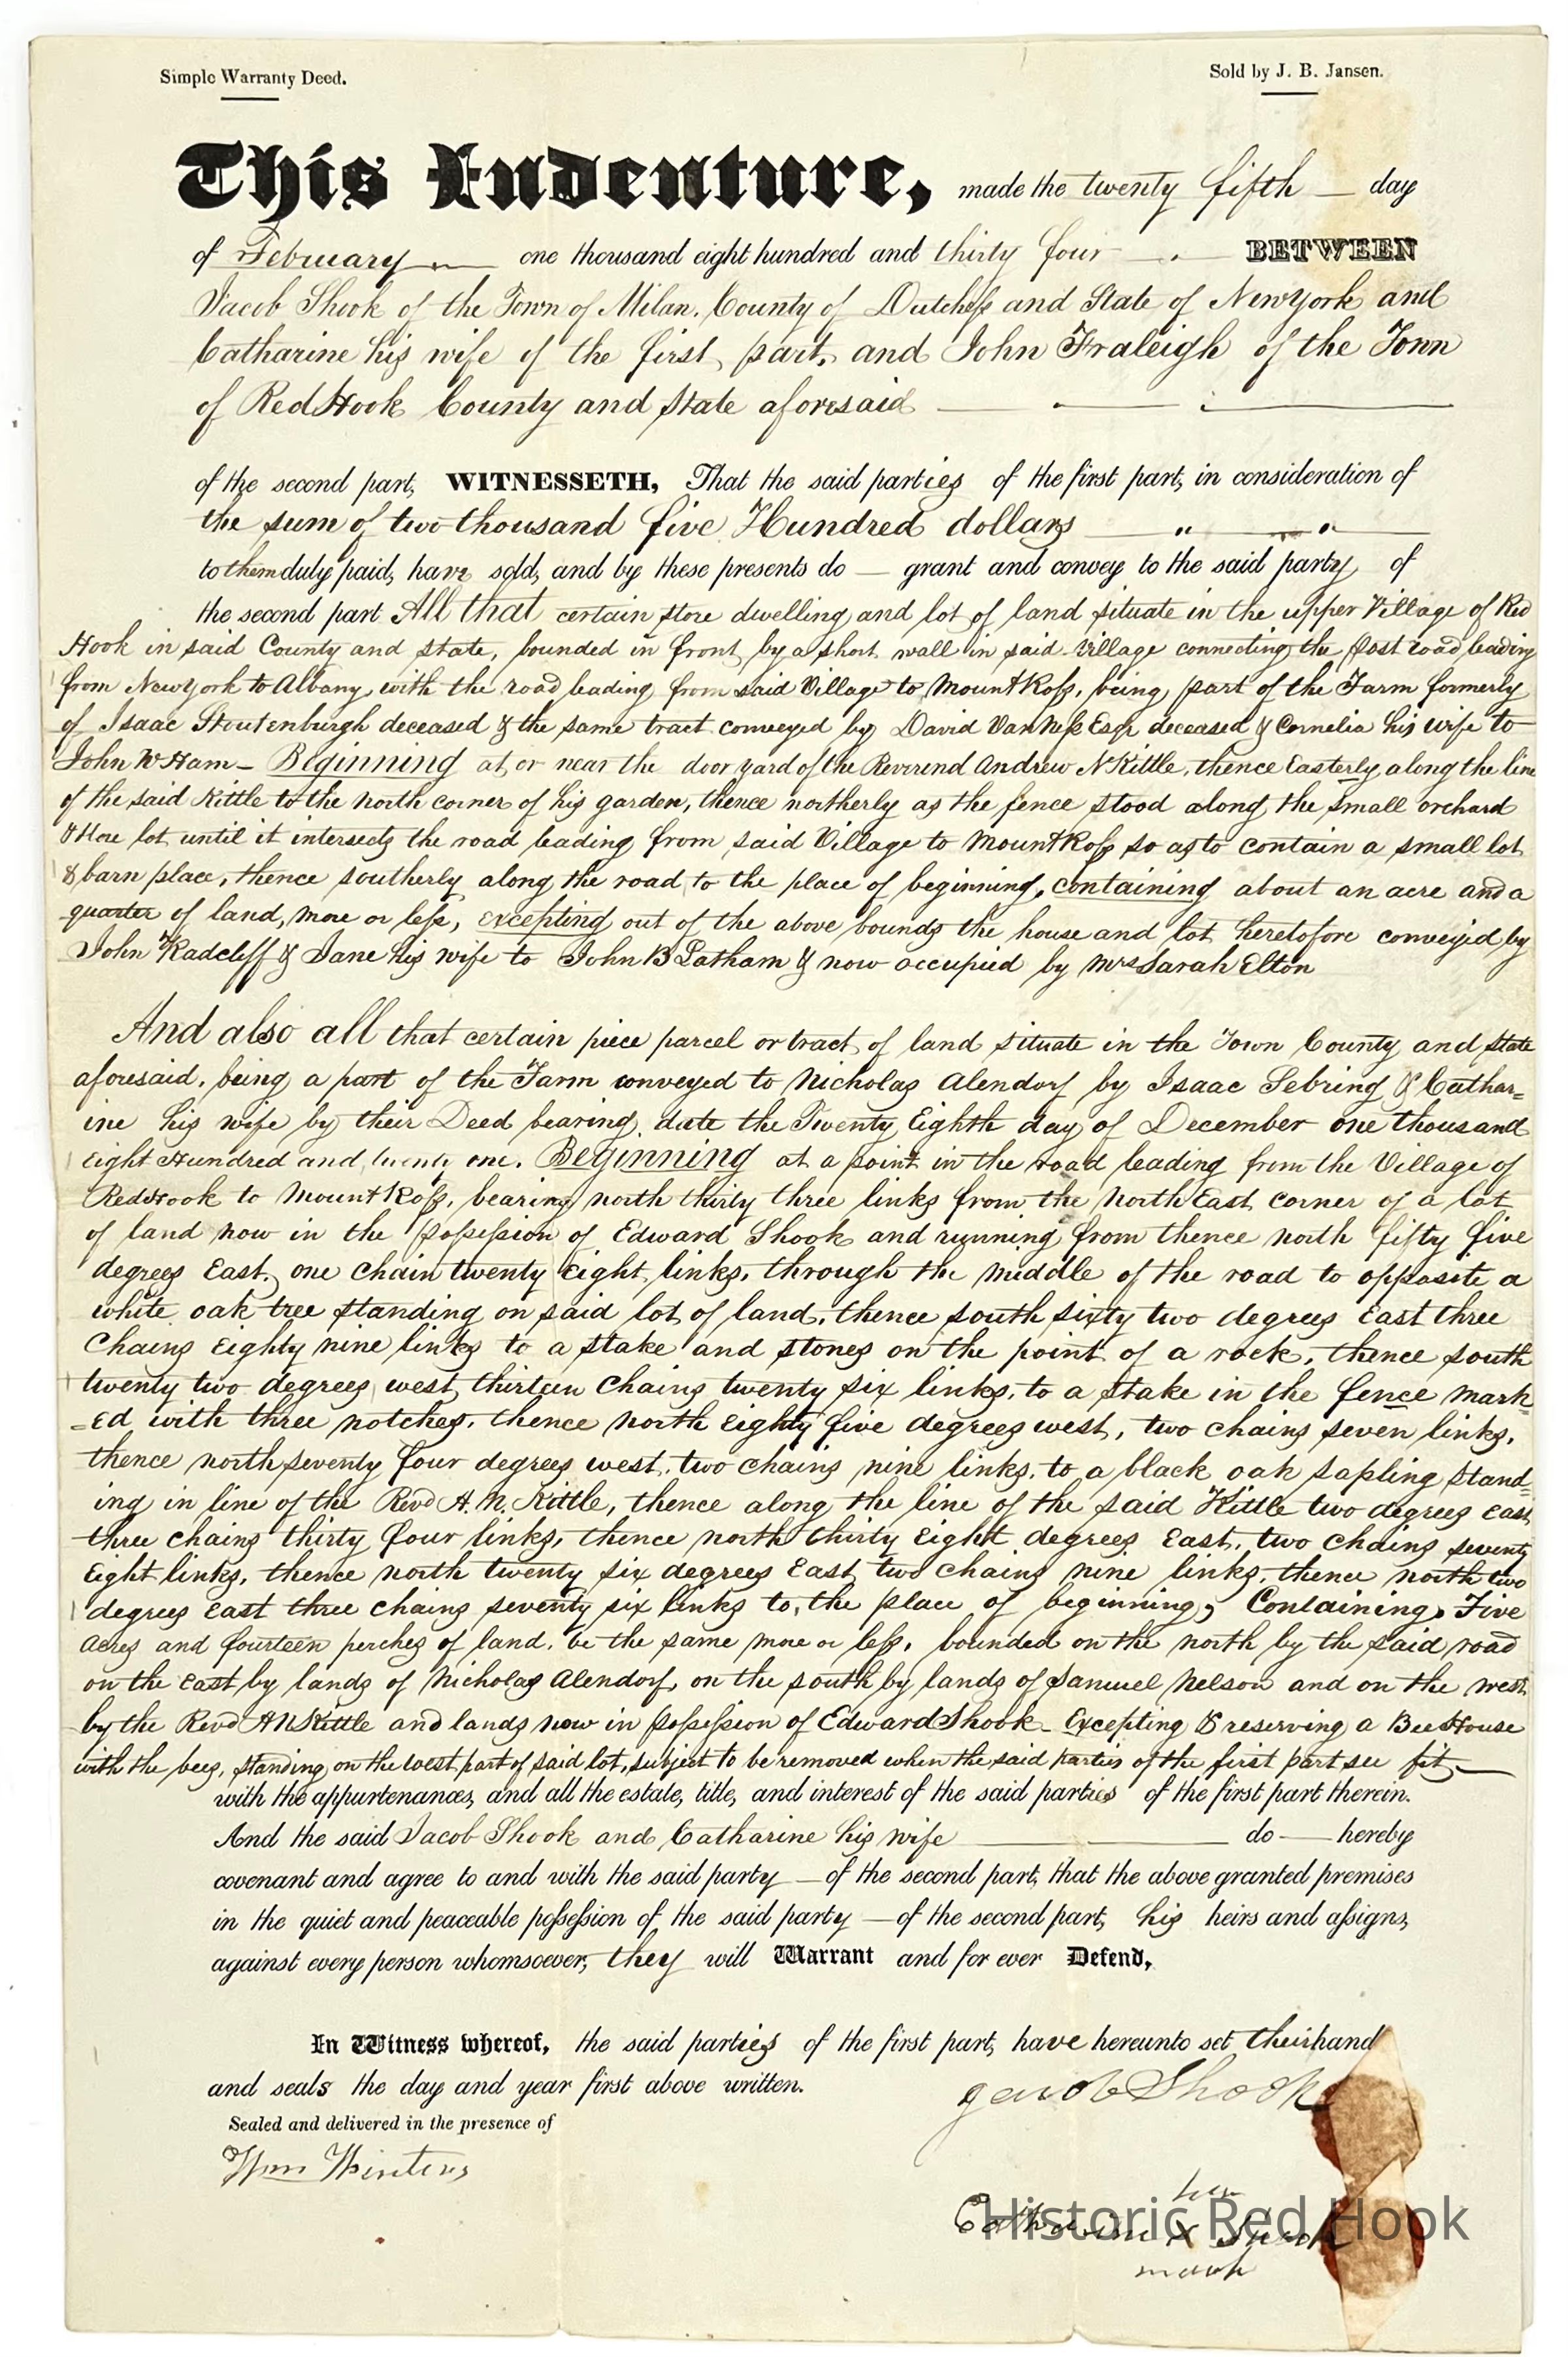 Simple Warranty Deed.
Sold by J. B. Jansen.
This Indenture, made the twenty fifth — day
of February — one thousand eight hundred and thirty four — BETWEEN
Jacob Shook of the Town of Milan, County of Dutchess and State of New York and
Catharine his wife of the first part, and John Fraleigh of the Town
of Red Hook County and State aforesaid
of the second part, WITNESSETH, That the said parties of the first part, in consideration of
the sum of two thousand five Hundred dollars
to them duly paid, have sold, and by these presents do — grant and convey to the said party of
the second part All that certain store dwelling and lot of land situate in the upper Village of Red
Hook in said County and State, bounded in front by a short wall in said Village connecting the post road leading
from New York to Albany with the road leading from said Village to Mount Ross, being part of the Farm formerly
of Isaac Stoutenburgh deceased & the same tract conveyed by David Van Ness Esqr deceased & Cornelia his wife to
John W Ham – Beginning at or near the door yard of the Reverend Andrew N Kittle, thence Easterly along the line
of the said Kittle to the north corner of his garden, thence northerly as the fence stood along the small orchard
& lot until it intersects the road leading from said Village to Mount Ross so as to contain a small lot
& barn place, thence southerly along the road to the place of beginning, containing about an acre and a
quarter of land, more or less, excepting out of the above bounds the house and lot heretofore conveyed by
John Radcliff & Jane his wife to John B Latham & now occupied by Mrs Sarah Elton
And also all that certain piece parcel or tract of land situate in the Town County and State
aforesaid, being a part of the Farm conveyed to Nicholas Alendorf by Isaac Sebring & Cathar=
ine his wife by their Deed bearing date the Twenty Eighth day of December one thousand
Eight Hundred and twenty one. Beginning at a point in the road leading from the Village of
Red Hook to Mount Ross, bearing north thirty three links from the North East corner of a lot
of land now in the possession of Edward Shook and running from thence north fifty five
degrees East, one chain twenty Eight links, through the middle of the road to opposite a
white oak tree standing on said lot of land, thence south sixty two degrees East three
Chains Eighty nine links to a stake and stones on the point of a rock, thence south
twenty two degrees west thirteen Chains twenty six links, to a stake in the fence mark
=ed with three notches, thence north Eighty five degrees west, two chains seven links,
thence north seventy four degrees west, two chains nine links, to a black oak sapling stand=
ing in line of the Revd A. N. Kittle, thence along the line of the said Kittle two degrees east
three chains thirty four links, thence north thirty Eight degrees East, two chains seventy
Eight links, thence north twenty six degrees East two chains nine links, thence north two
degrees East three chains seventy six links to the place of beginning, Containing Five
Acres and fourteen perches of land, be the same more or less, bounded on the north by the said road
on the East by lands of Nicholas Alendorf, on the south by lands of Samuel Nelson and on the west
by the Revd A N Kittle and lands now in possession of Edward Shook – Excepting & reserving a Bee House
with the bees, standing on the west part of said lot, subject to be removed when the said parties of the first part see fit —
with the appurtenances, and all the estate, title, and interest of the said parties of the first part therein.
And the said Jacob Shook and Catharine his wife — do — hereby
covenant and agree to and with the said party — of the second part, that the above granted premises
in the quiet and peaceable possession of the said party — of the second part, his heirs and assigns,
against every person whomsoever, they will Warrant and for ever Defend.
In Witness whereof, the said parties of the first part, have hereunto set their hand
and seals the day and year first above written.
Sealed and delivered in the presence of
Jacob Shook
Wm Winters
her
Catharine X Shook
mark
Historic Red Hook